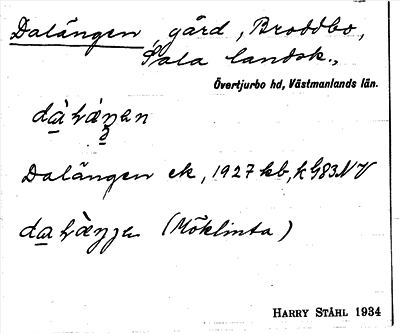 Dalängen, gård, Broddbo,
Sala landsk.,
Övertjurbo hd, Västmanlands län.
Dalängen ek, 1927 kb,
(Möklinta)
HARRY STÅHL 1934